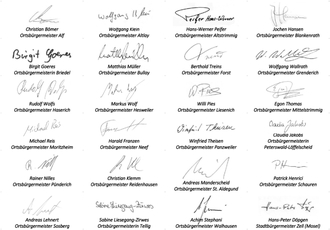 Christian Börner
Ortsbürgermeister Alf
Wolfgang Klein
Ortsbürgermeister Altlay
Hans-Werner Peifer
Ortsbürgermeister Altstrimmig
Jochen Hansen
Ortsbürgermeister Blankenrath
Birgit Goeres
Birgit Goeres
Ortsbürgermeisterin Briedel
Matthias Müller
Ortsbürgermeister Bullay
Berthold Treins
Ortsbürgermeister Forst
Wolfgang Wallrath
Ortsbürgermeister Grenderich
Rudolf Wolfs
Ortsbürgermeister Haserich
Markus Wolf
Ortsbürgermeister Hesweiler
Willi Pies
Ortsbürgermeister Liesenich
Egon Thomas
Ortsbürgermeister Mittelstrimmig
Michael Reis
Michael Reis
Ortsbürgermeister Moritzheim
Harald Franzen
Ortsbürgermeister Neef
Winfried Theisen
Ortsbürgermeister Panzweiler
Claudia Jakobs
Claudia Jakobs
Ortsbürgermeisterin
Peterswald-Löffelscheid
Rainer Nilles
Ortsbürgermeister Pünderich
Christian Klemm
Ortsbürgermeister Reidenhausen
Andreas Manderscheid
Ortsbürgermeister St. Aldegund
Patrick Henrici
Ortsbürgermeister Schauren
Andreas Lehnert
Ortsbürgermeister Sosberg
Sabine Liesegang-Zirwes
Ortsbürgermeisterin Tellig
Achim Stephani
Ortsbürgermeister Walhausen
Hans-Peter Döpgen
Stadtbürgermeister Zell (Mosel)